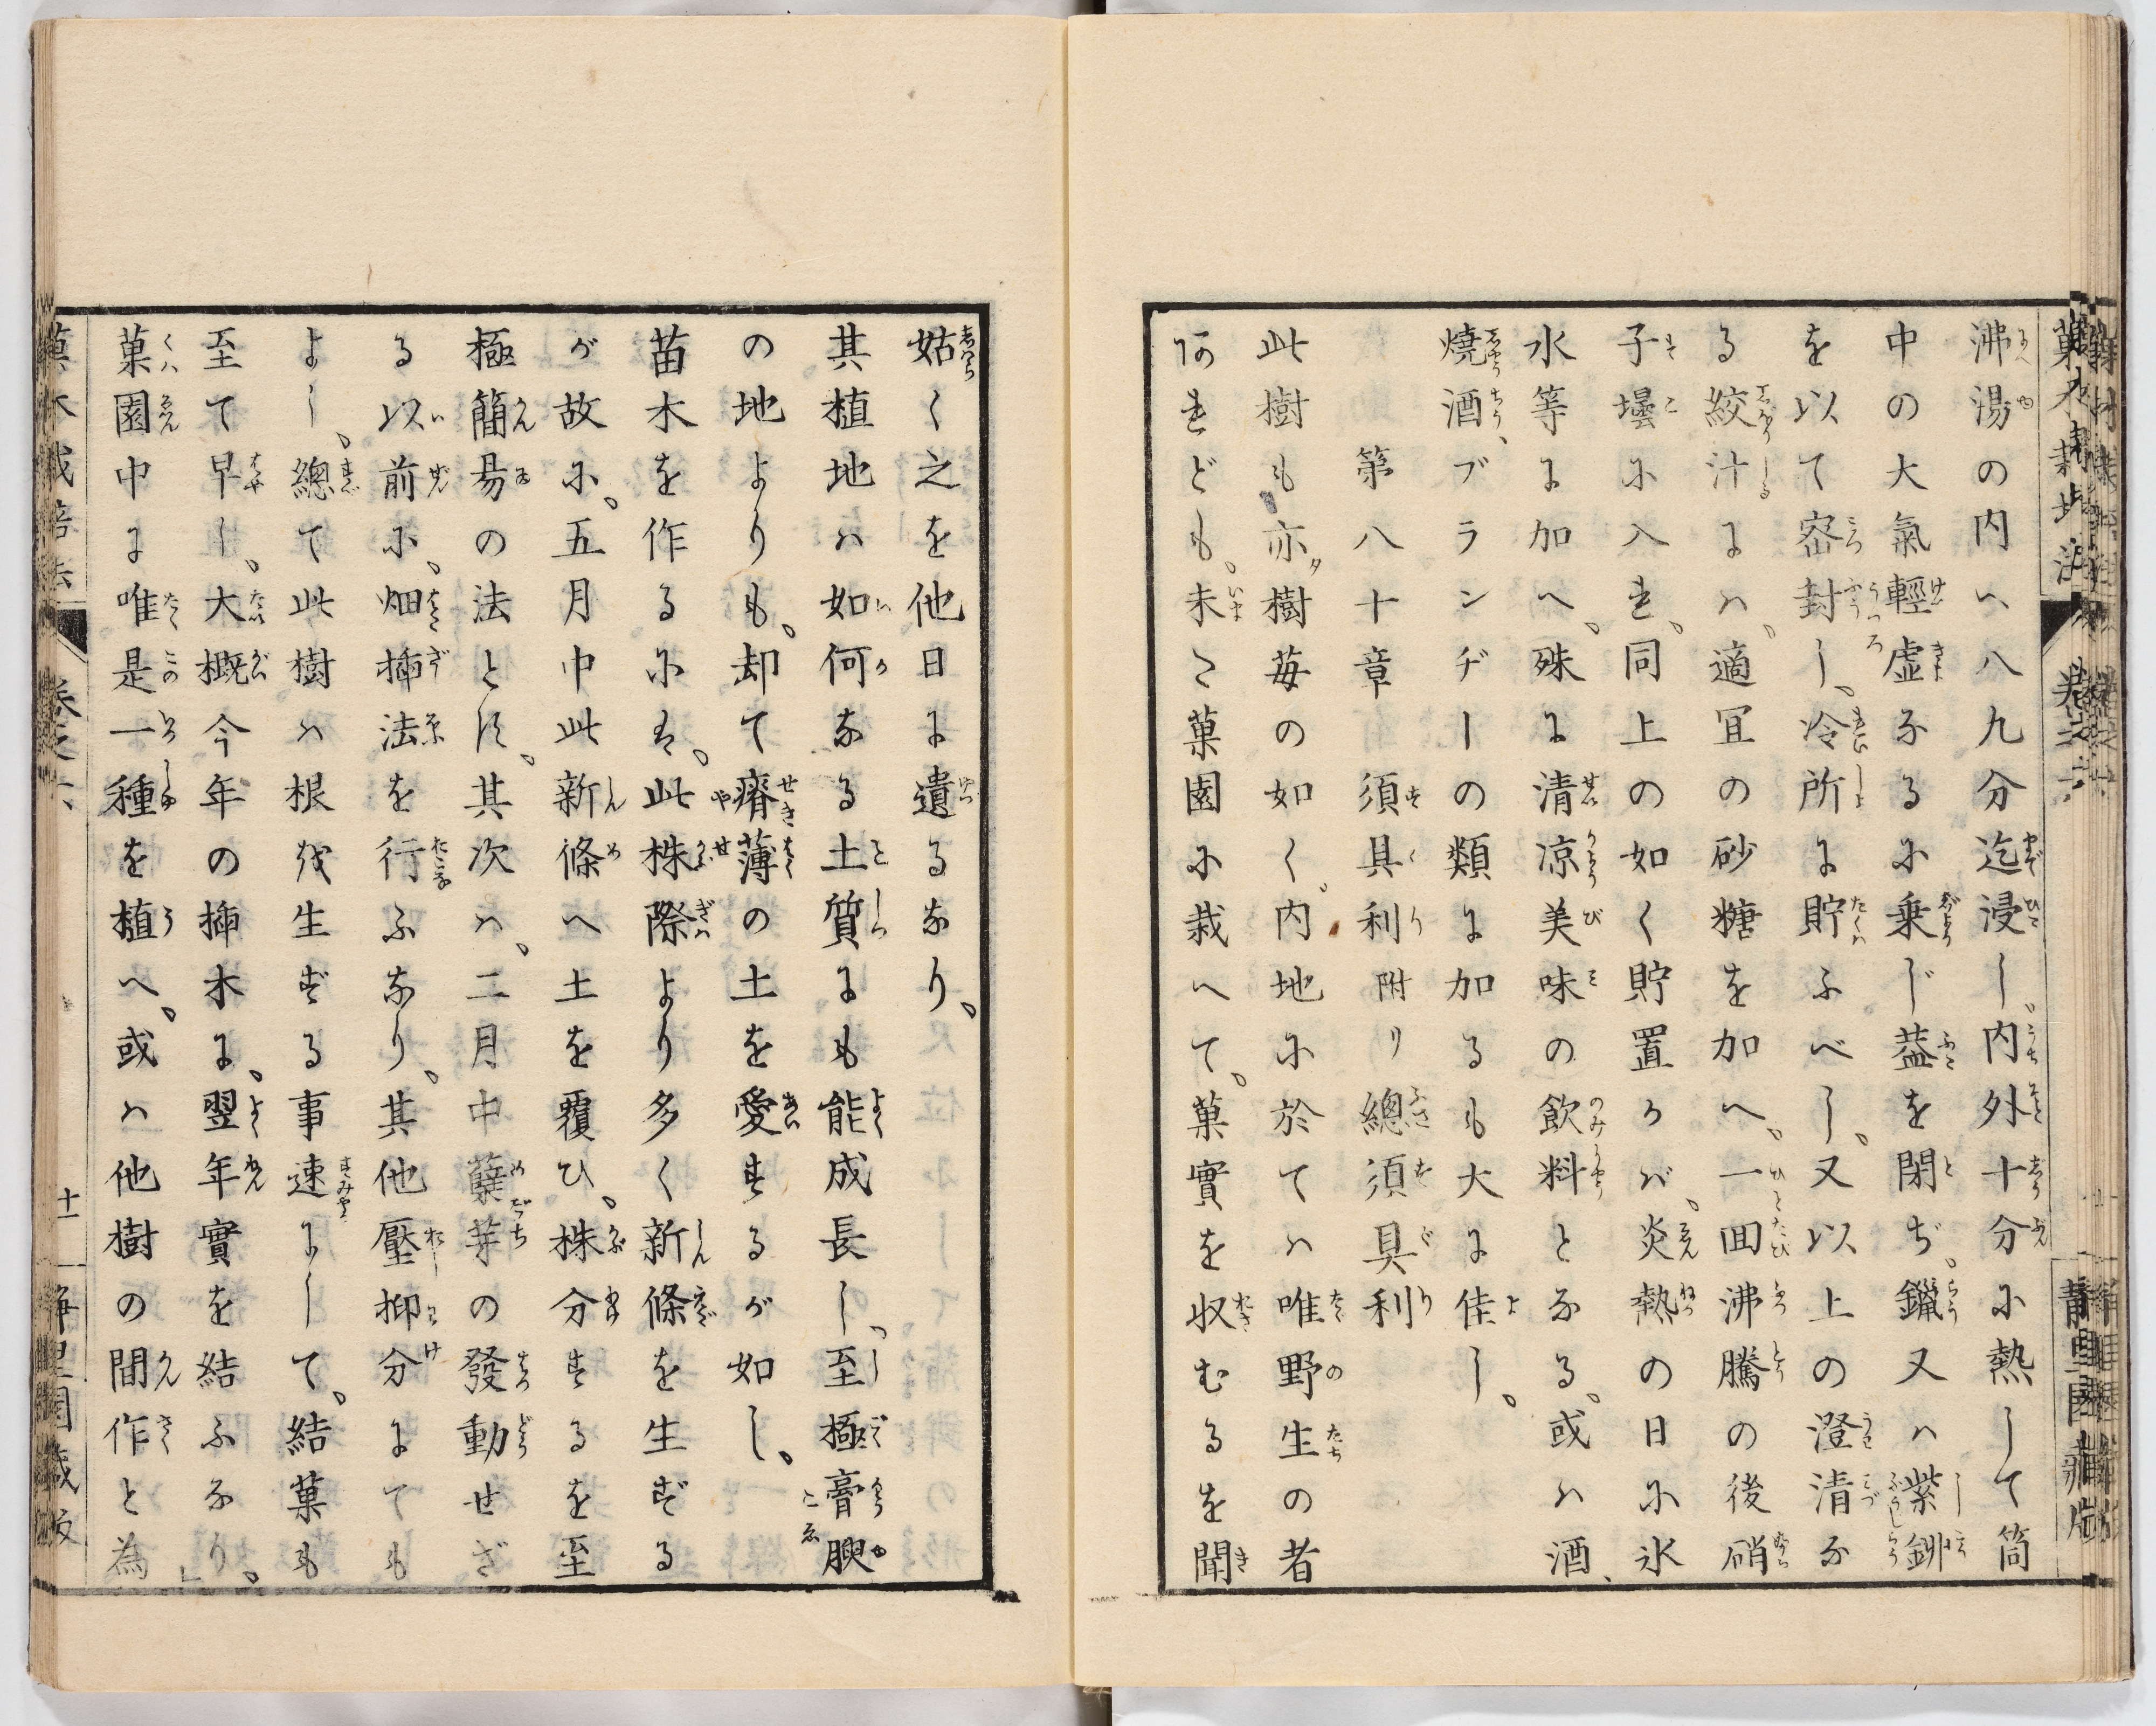 沸湯の内へ八九分迄浸し、内外十分に熱して筒
中の大氣輕虚なるに乗じ葢を閉ぢ、鑞又ハ紫鉚
を以て密封し、冷所に貯ふべし、又以上の澄清な
る絞汁にハ、適冝の砂糖を加へ、一回沸騰の後硝
子壜に入れ、同上の如く貯置かバ、炎熱の日に氷
水等に加へ、殊に清涼美味の飲料となる、或ハ酒、
燒酒、ブランヂーの類に加るも大に佳し、
第八十章 須具利 附リ 總須具利
此樹も亦樹莓の如く、内地に於てハ唯野生の者
阿れども、未た菓園に栽へて、菓實を収むるを聞
姑く之を他日に遺るなり、
其植地ハ如何なる土質にも能成長し、至極膏腴
の地よりも、却て瘠薄の土を愛するが如し、
苗木を作るには、此株際より多く新條を生ずる
が故に、五月中此新條へ土を覆ひ、株分するを至
極簡易の法とす、其次ハ、二月中蘖芽の發動せざ
る以前に、畑揷法を行ふなり、其他壓抑分にても
よし、總て此樹ハ根を生ずる事速にして、結菓も
至て早し、大概今年の揷木に、翌年實を結ふなり、
菓園中に唯是一種を植へ、或ハ他樹の間作と為
菓木栽培法 巻之六 十一 静里園蔵版